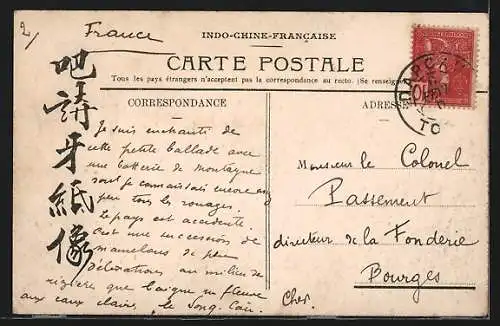 2/
France
INDO-CHINE-FRANÇAISE
CARTE POSTALE
Tous les pays étrangers n'acceptent pas la correspondance au recto. (Se renseigner
CORRESPONDANCE
ADRESSE
吧
請
牙
紙
像
Je suis enchanté de
cette petite ballade avec
une batterie de montagne
dont je connaissais encore un
peu tous les rouages.
Le pays est accidenté.
C'est une succession de
mamelons de peu
d'élévation au milieu de
rizière que baigne un fleuve
aux eaux claires, le Song-Cau.
Monsieur le Colonel
Passement
directeur de la Fonderie
Bourges
Cher.
10
TO